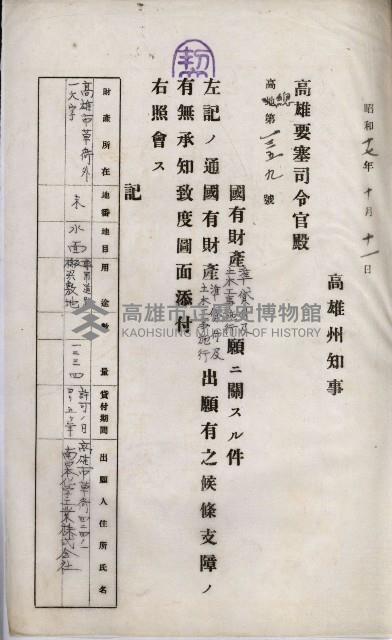 昭和十七年十月十一日
高雄州知事
高雄要塞司令官殿
高地第一三五九號
國有財產準貸付及土木工事施行願ニ關スル件
左記ノ通國有財產準貸付及土木工事施行出願有之候條支障ノ
有無承知致度圖面添付
右照會ス
記
財產所在地
番地
地目
用途
數量
貸付期間
出願人住所氏名
高雄市草衙外一大字
未
水面
專用道路敷地
一三三四
許可ノ日ヨリ五ヶ年
高雄市草衙四二四ノ一
南日本化學工業株式會社
契
高雄市立歷史博物館
KAOHSIUNG MUSEUM OF HISTORY